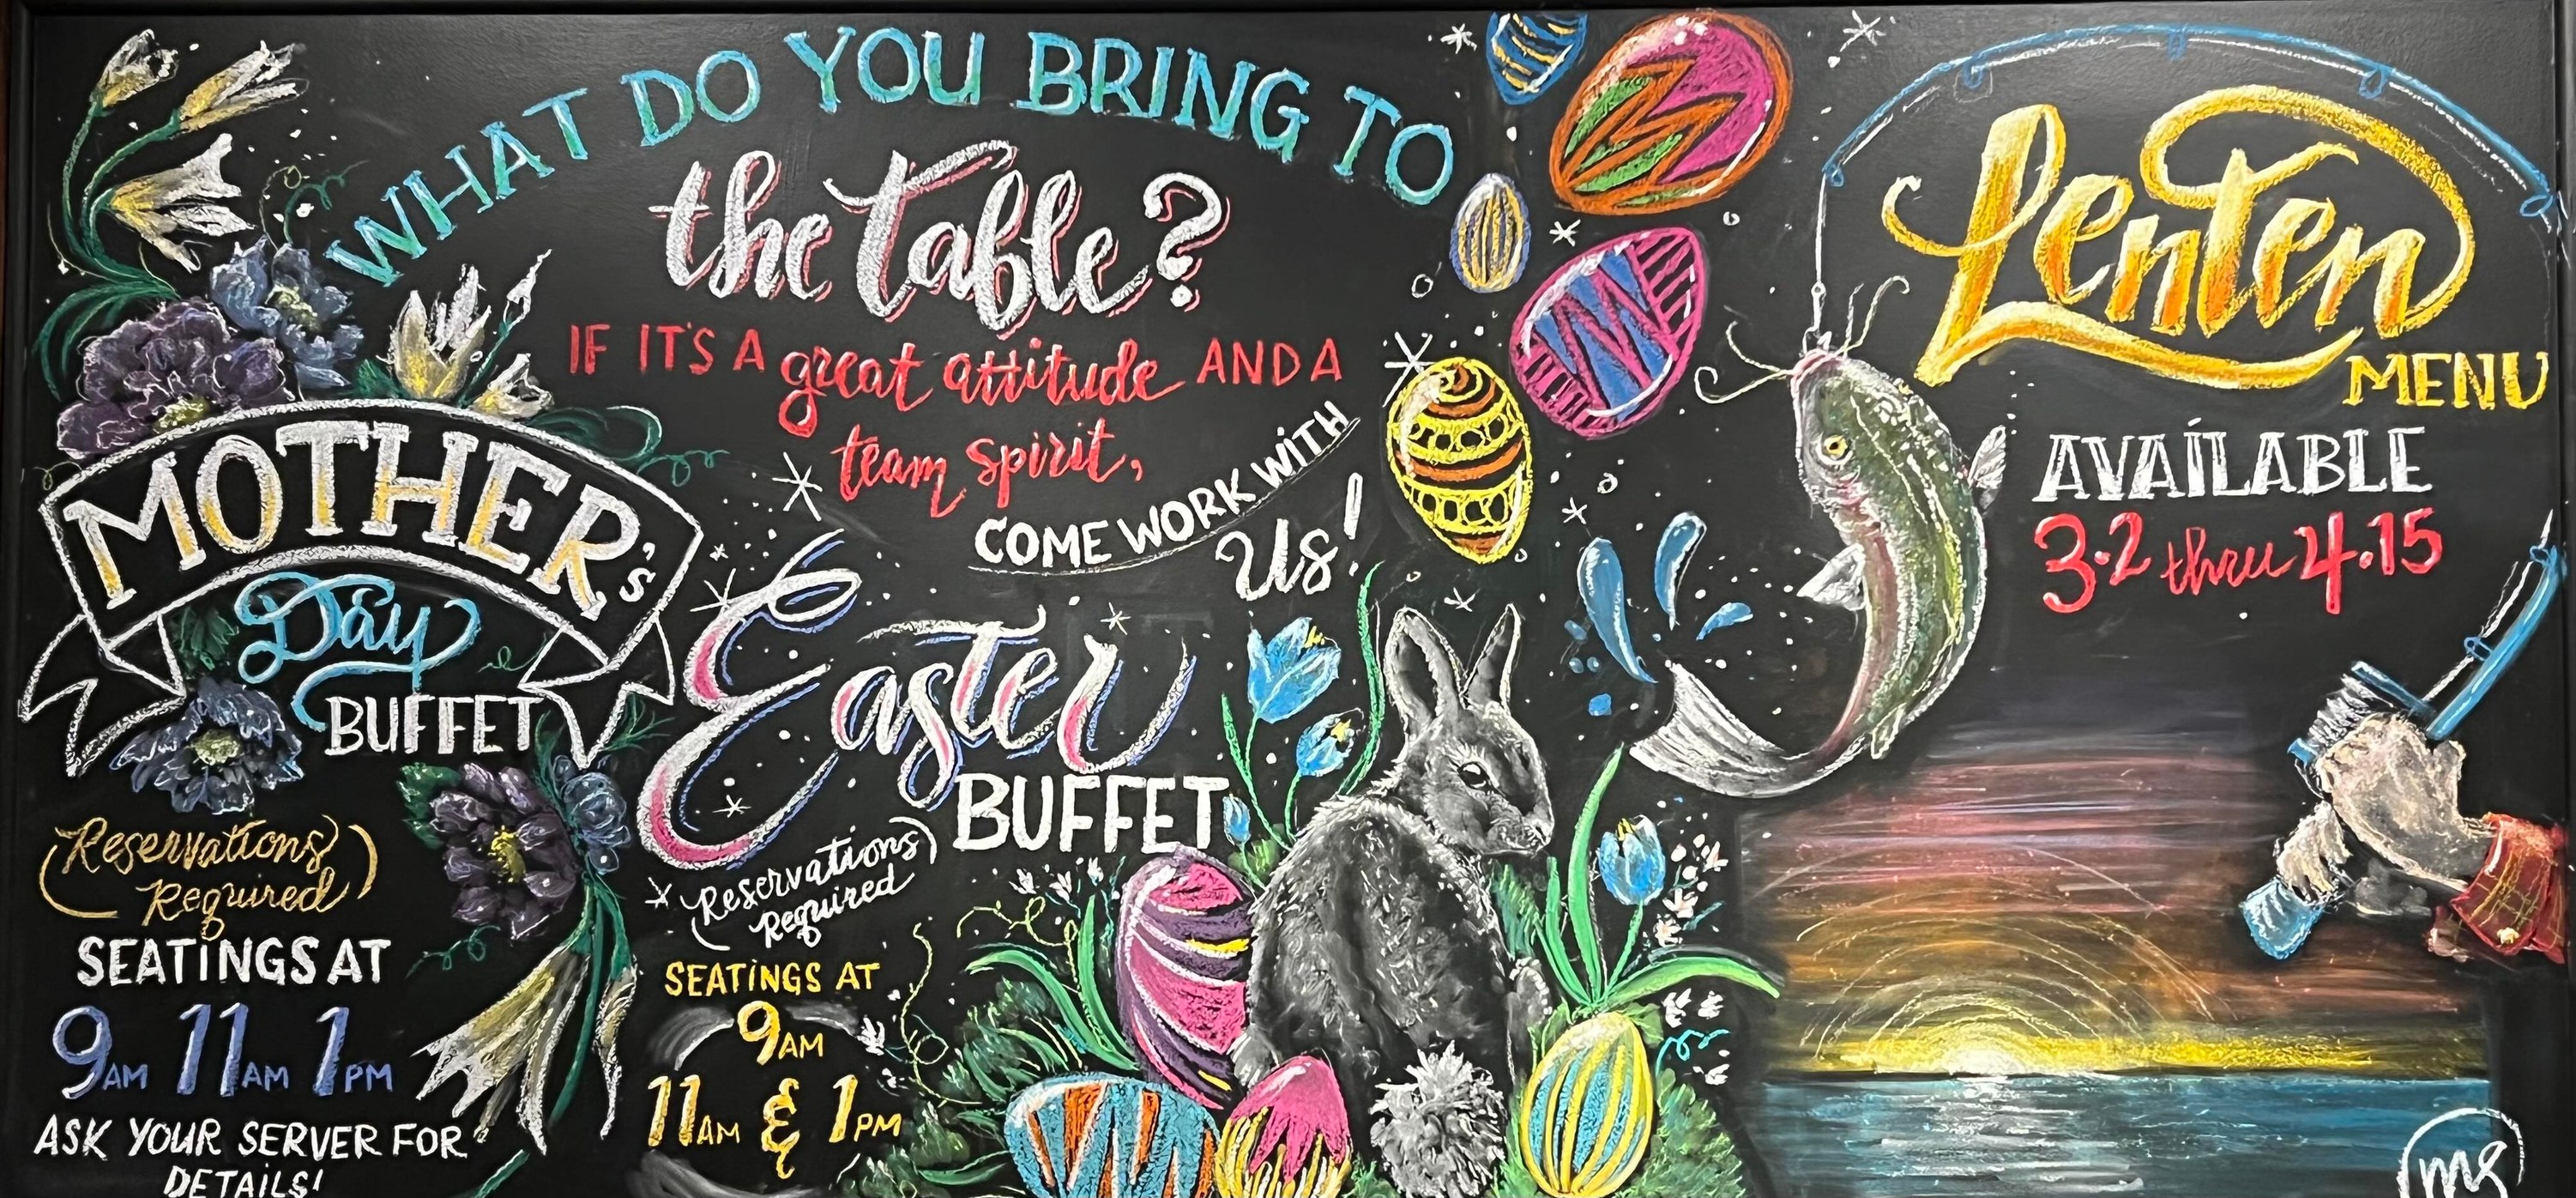 WHAT DO YOU BRING TO
the Table?
IF IT'S A great attitude AND A
team spirit,
COME WORK WITH
Us!
MOTHER's
Day
BUFFET
(Reservations
Required)
SEATINGS AT
9AM 11AM 1PM
ASK YOUR SERVER FOR
DETAILS!
Easter
BUFFET
(Reservations
Required)
SEATINGS AT
9AM
11AM & 1PM
Lenten
MENU
AVAILABLE
3.2 thru 4.15